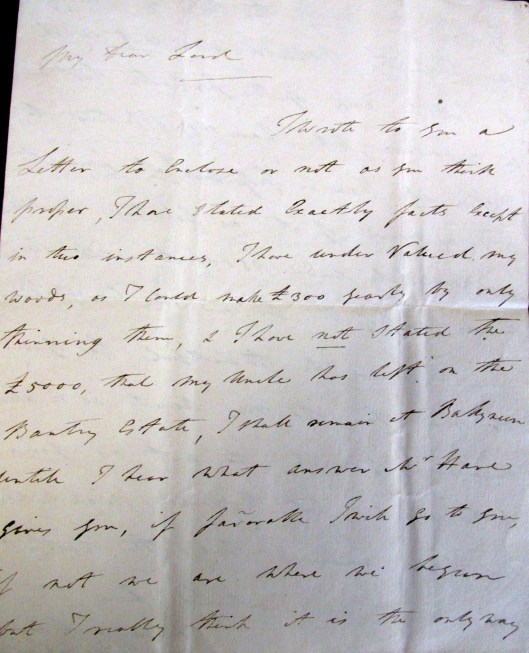 My dear Lord
I wrote to you a
Letter to Enclose or not as you think
proper, I have stated Exactly facts Except
in two instances, I have under Valued my
woods, as I Could make £300 yearly by only
thinning them, & I have not stated the
£5000, that my Uncle has left on the
Bantry Estate, I shall remain at
until I hear what answer Mr Hare
gives you, if favorable I will go to you,
if not we are where we begun
but I really think it is the only way